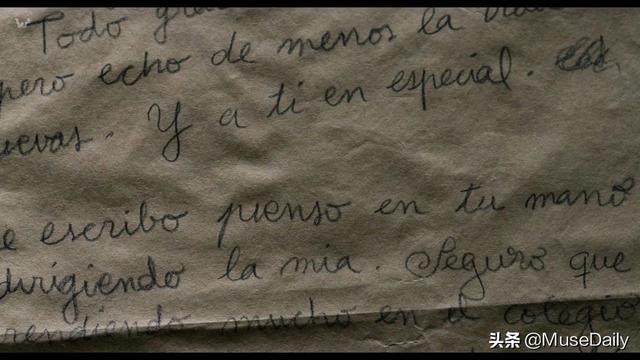 Todo
pero echo de menos la
uevas. Y a ti en especial.
e escribo pienso en tu mano
dirigiendo la mia. Seguro que
rendiendo mucho en el colegio
头条 @MuseDaily